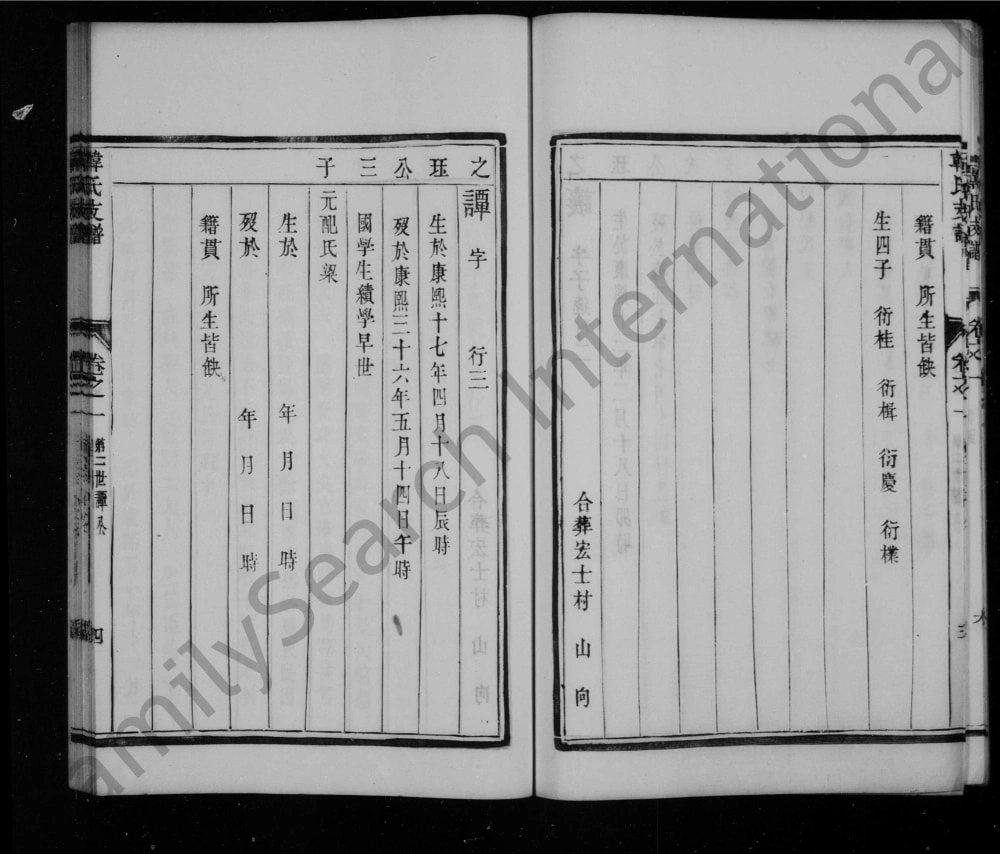 籍貫 所生皆缺
生四子 衍桂 衍楫 衍慶 衍檏
合葬宏士村 山 向
之 珏 公 三 子
譚 字 行三
生於康熙十七年四月十八日辰時
歿於康熙三十六年五月十四日午時
國學生績學早世
元配氏梁
生於 年 月 日 時
歿於 年 月 日 時
籍貫 所生皆缺
韓氏支譜 卷之一 第二世譚系 四
FamilySearch International